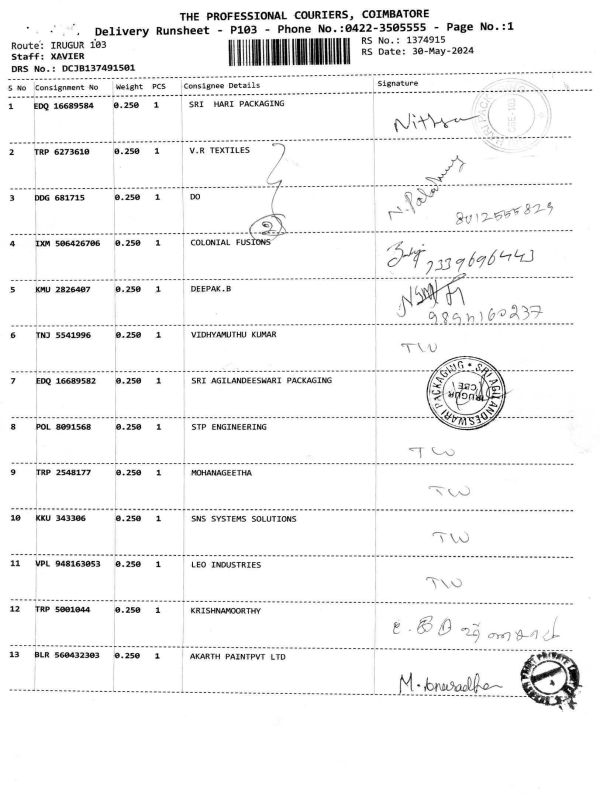 THE PROFESSIONAL COURIERS, COIMBATORE
Delivery Runsheet - P103 - Phone No.:0422-3505555 - Page No.:1
Route: IRUGUR 103 RS No.: 1374915
Staff: XAVIER RS Date: 30-May-2024
DRS No.: DCJB137491501
S No Consignment No Weight PCS Consignee Details Signature
1 EDQ 16689584 0.250 1 SRI HARI PACKAGING
Nithya
2 TRP 6273610 0.250 1 V.R TEXTILES
3 DDG 681715 0.250 1 DO
8012555829
2
4 IXM 506426706 0.250 1 COLONIAL FUSIONS
7339696443
5 KMU 2826407 0.250 1 DEEPAK.B
9894160237
6 TNJ 5541996 0.250 1 VIDHYAMUTHU KUMAR
TW
7 EDQ 16689582 0.250 1 SRI AGILANDEESWARI PACKAGING
SRI AGILANDESWARI PACKAGING
IRUGUR
CBE
8 POL 8091568 0.250 1 STP ENGINEERING
TW
9 TRP 2548177 0.250 1 MOHANAGEETHA
TW
10 KKU 343306 0.250 1 SNS SYSTEMS SOLUTIONS
TW
11 VPL 948163053 0.250 1 LEO INDUSTRIES
TW
12 TRP 5001044 0.250 1 KRISHNAMOORTHY
13 BLR 560432303 0.250 1 AKARTH PAINTPVT LTD
M. Anuradha